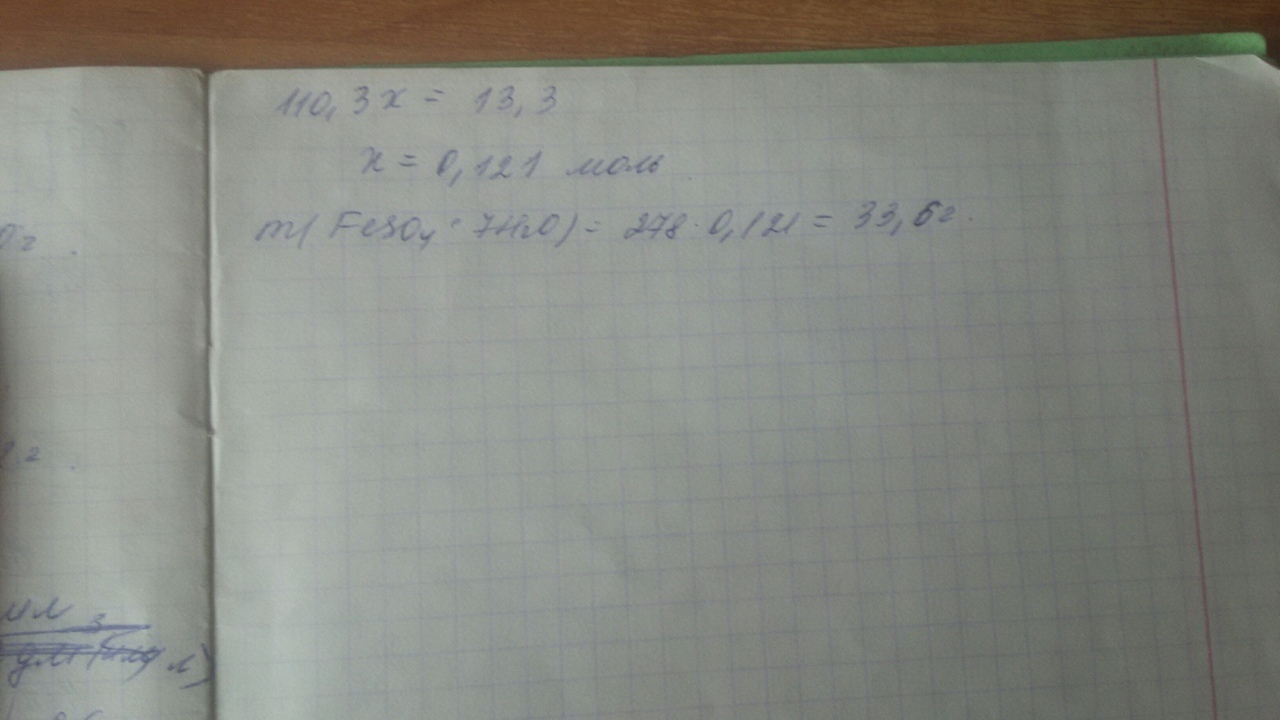 110,3x = 13,3
x = 0,121 моль
m(FeSO₄ · 7H₂O) = 278 · 0,121 = 33,6г.
0г.
2г.
мл
л)